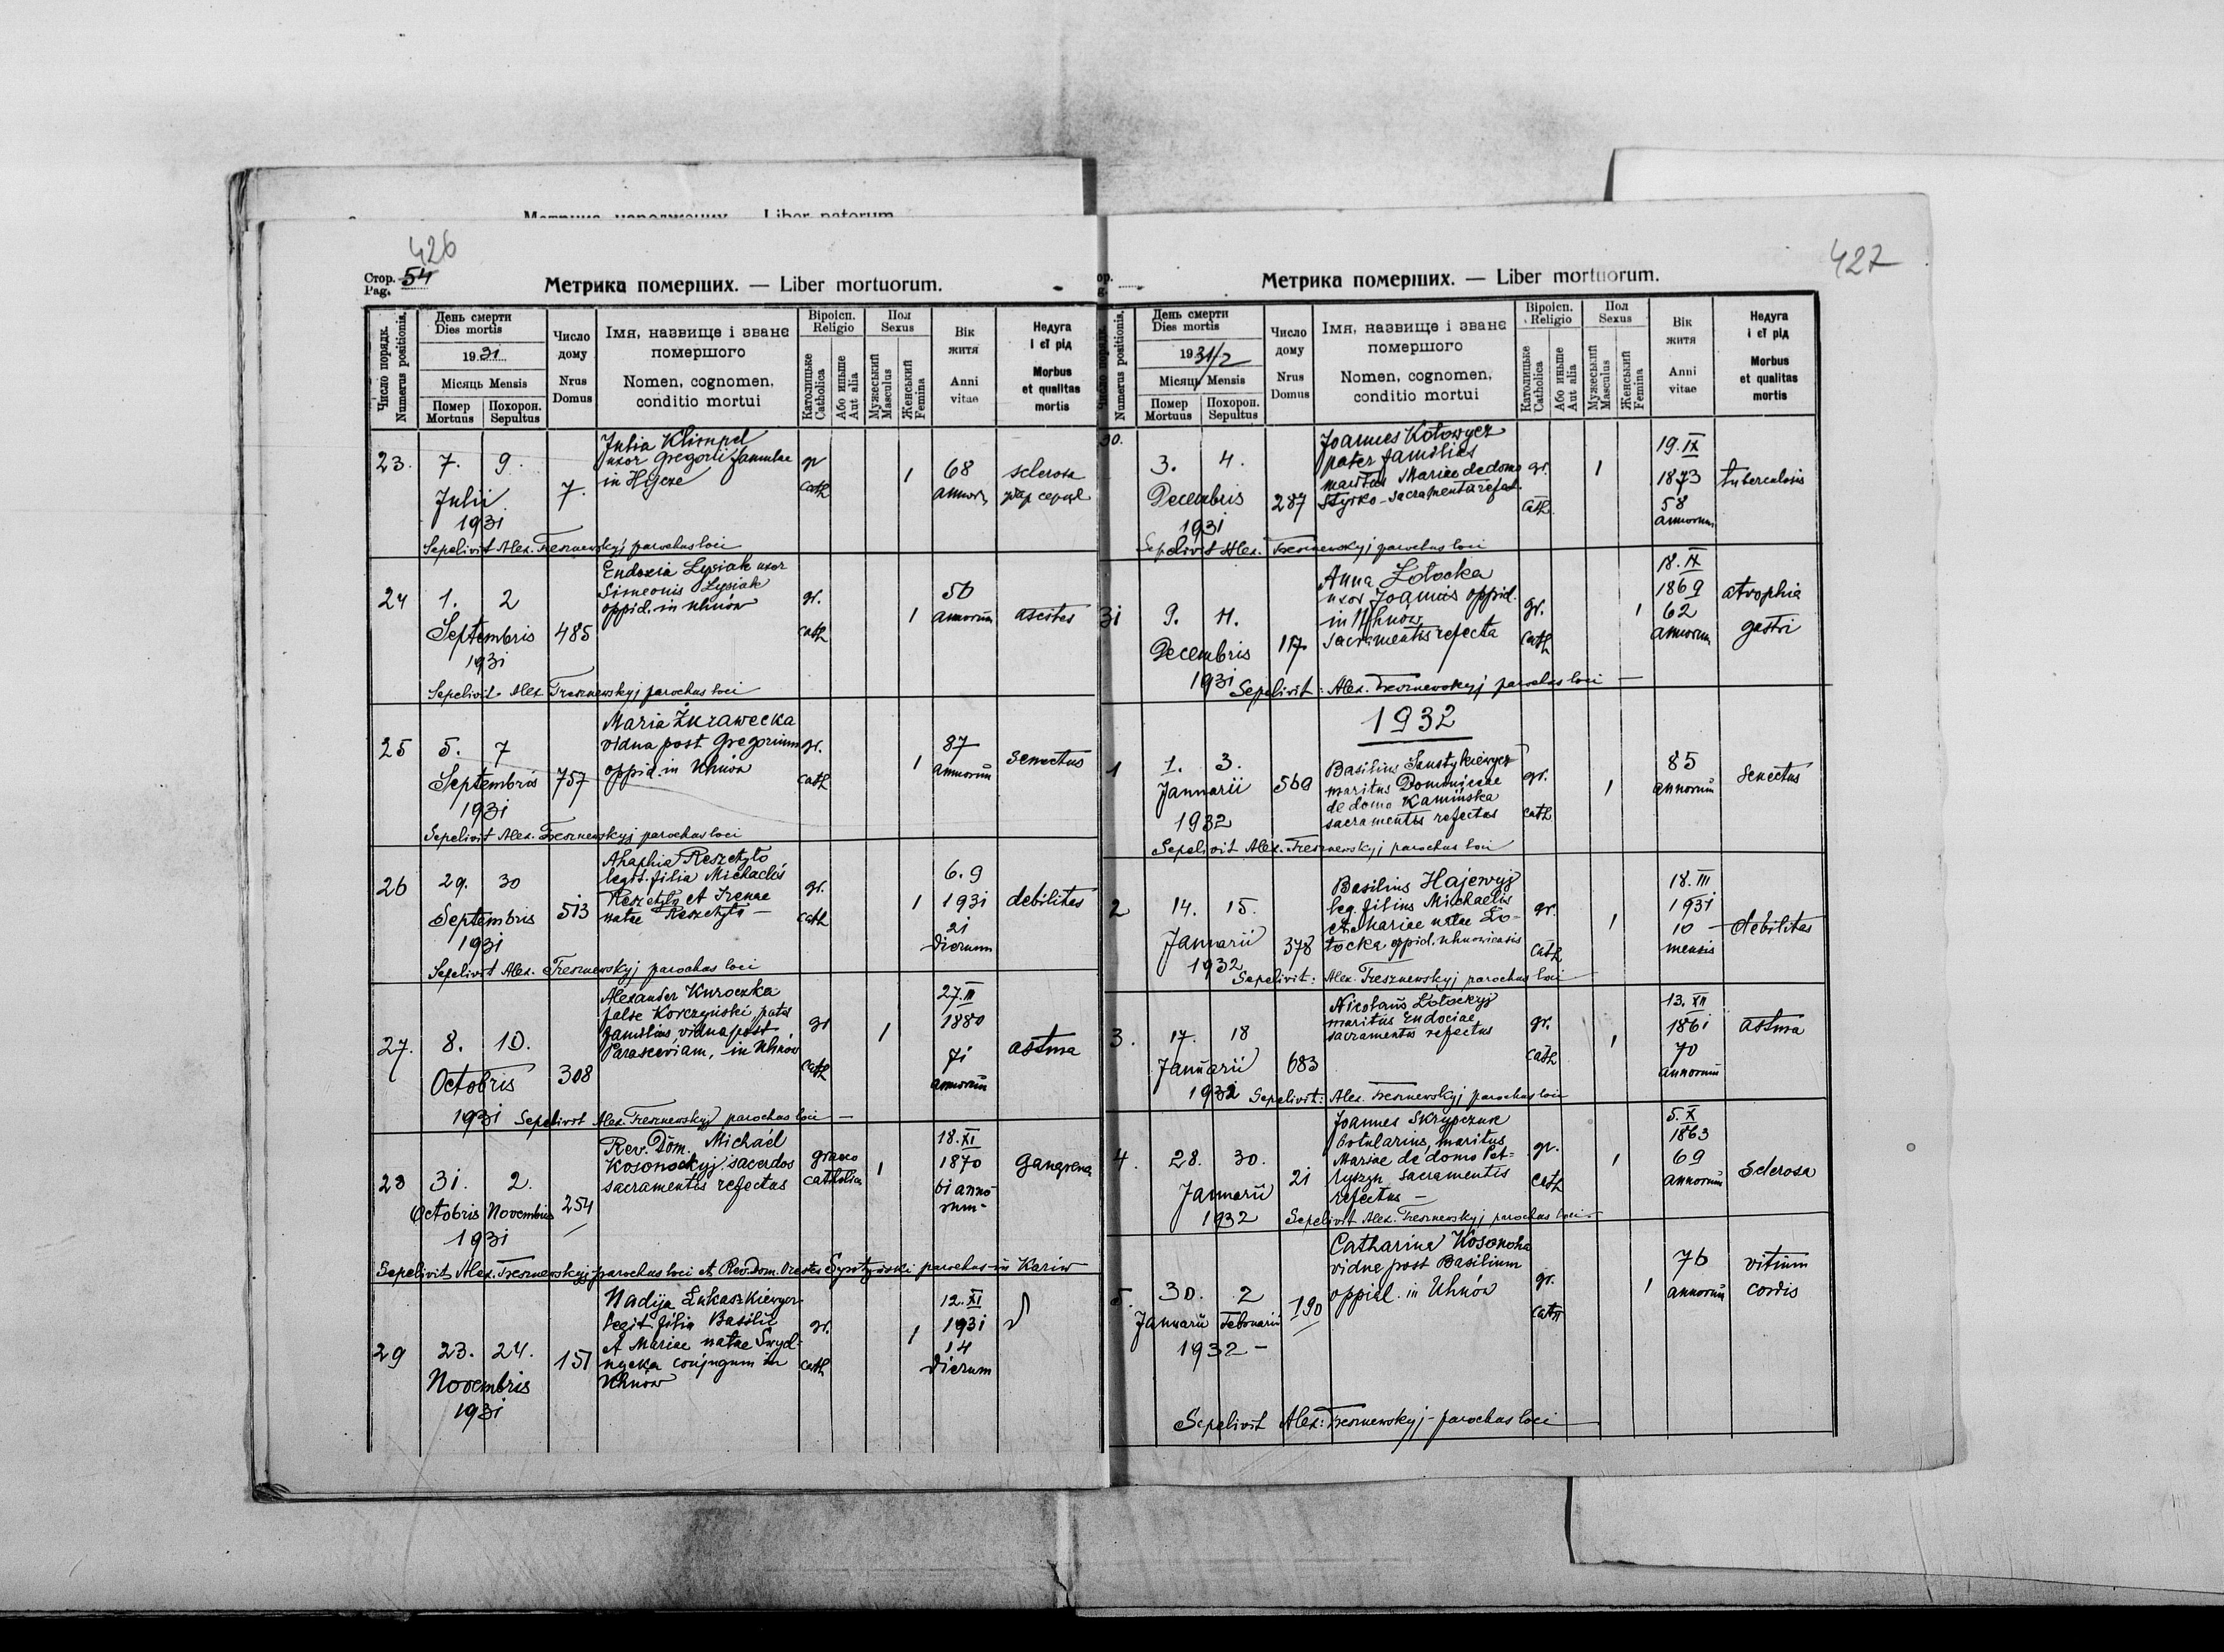 Метрика народжених. — Liber natorum.
426
Стор. 54
Pag.
Метрика померших. — Liber mortuorum.
Число порядк.
Numerus positionis.
День смерти
Dies mortis
1931
Місяць Mensis
Помер
Mortuus
Похорон.
Sepultus
Число
дому
Nrus
Domus
Імя, назвище і званє
помершого
Nomen, cognomen,
conditio mortui
Віроісп.
Religio
Католицьке
Catholica
Або иньше
Aut alia
Пол
Sexus
Мужеський
Masculus
Женський
Femina
Вік
житя
Anni
vitae
Недуга
і єї рід
Morbus
et qualitas
mortis
23. 7. 9.
Julii
1931
7.
Julia Klimpel
uxor Gregorii famulae
in
gr
cath
1
68
annor.
sclerosa
удар серця
Sepelivit Alex. Tresznewskyj parochus loci
24 1. 2
Septembris
1931
485
Eudoxia Lysiak uxor
Simeonis Lysiak
oppid. in Uhnów
gr.
cath
1
50
annorum
ascites
Sepelivit Alex Tresznewskyj parochus loci
25 5. 7
Septembris
1931
757
Maria Żurawecka
vidua post Gregorium
oppid. in Uhnów
gr.
cath
1
87
annorum
senectus
Sepelivit Alex. Tresznewskyj parochus loci
26 29. 30
Septembris
1931
513
Ahaphia Reszetyło
legit. filia Michaelis
Reszetyło et Irenae
natae Reszetyło —
gr.
cath
1
6. 9
1931
21
dierum
debilitas
Sepelivit Alex. Tresznewskyj parochus loci
27. 8. 10.
Octobris
1931
308
Alexander Kuroczka
false Korczyński, pater
familias, vidua post
Parasceviam, in Uhnów
gr
cath
1
27. III
1880
71
annorum
astma
Sepelivit Alex. Tresznewskyj parochus loci —
28 31. 2.
Octobris Novembris
1931
254
Rev. Dom. Michaël
Kosonockyj, sacerdos
sacramentis refectus
graeco
catholica
1
18. XI
1870
61 anno-
rum-
gangrena
Sepelivit Alex. Tresznewskyj parochus loci et Rev. Dom. Orestes parochus in Kariw
29 23. 24.
Novembris
1931
151
Nadija Łukaszkiewycz
legit. filia Basilii
et Mariae natae Swyd-
nycka conjugum in
Uhnów
gr.
cath
1
12. XI
1931
14
dierum
427
ор.
g.
Метрика померших. — Liber mortuorum.
Число порядк.
Numerus positionis.
День смерти
Dies mortis
1931/2
Місяць Mensis
Помер
Mortuus
Похорон.
Sepultus
Число
дому
Nrus
Domus
Імя, назвище і званє
помершого
Nomen, cognomen,
conditio mortui
Віроісп.
Religio
Католицьке
Catholica
Або иньше
Aut alia
Пол
Sexus
Мужеський
Masculus
Женський
Femina
Вік
житя
Anni
vitae
Недуга
і єї рід
Morbus
et qualitas
mortis
30.
3. 4.
Decembris
1931
287
Joannes Kotowycz
pater familias
maritus Mariae de domo
Styrko - sacramentis refect.
gr.
cath.
1
19. IX
1873
58
annorum
tuberculosis
Sepelivit Alex. Tresznewskyj parochus loci
31 9. 11.
Decembris
1931
117
Anna Zołocka
uxor Joannis oppid.
in Uhnów
sacramentis refecta
gr.
cath
1
18. IX
1869
62
annorum
atrophia
gastri
Sepelivit: Alex. Tresznewskyj parochus loci —
1932
1 1. 3.
Januarii
1932
560
Basilius
maritus Dominicae
de domo Kamińska
sacramentis refectus
gr.
cath
1
85
annorum
senectus
Sepelivit Alex. Tresznewskyj parochus loci
2 14. 15.
Januarii
1932
378
Basilius Hajewyj
leg. filius Michaelis
et Mariae natae Zo-
łocka oppid. uhnowiensis
gr.
cath
1
18. III
1931
10
mensis
debilitas
Sepelivit: Alex. Tresznewskyj parochus loci —
3. 17. 18
Januarii
1932
683
Nicolaus Zołockyj
maritus Eudociae
sacramentis refectus
gr.
cath
1
13. XII
1861
70
annorum
astma
Sepelivit: Alex. Tresznewskyj parochus loci
4. 28. 30.
Januarii
1932
21
Joannes Skrypczuk
botularius, maritus
Mariae de domo Pet-
ryszyn sacramentis
refectus —
gr.
cath
1
5. X
1863
69
annorum
sclerosa
Sepelivit Alex. Tresznewskyj parochus loci —
5. 30. 2
Januarii Februarii
1932 —
190
Catharina Kosonoha
vidua post Basilium
oppid. in Uhnów
gr.
cath
1
76
annorum
vitium
cordis
Sepelivit Alex: Tresznewskyj - parochus loci —